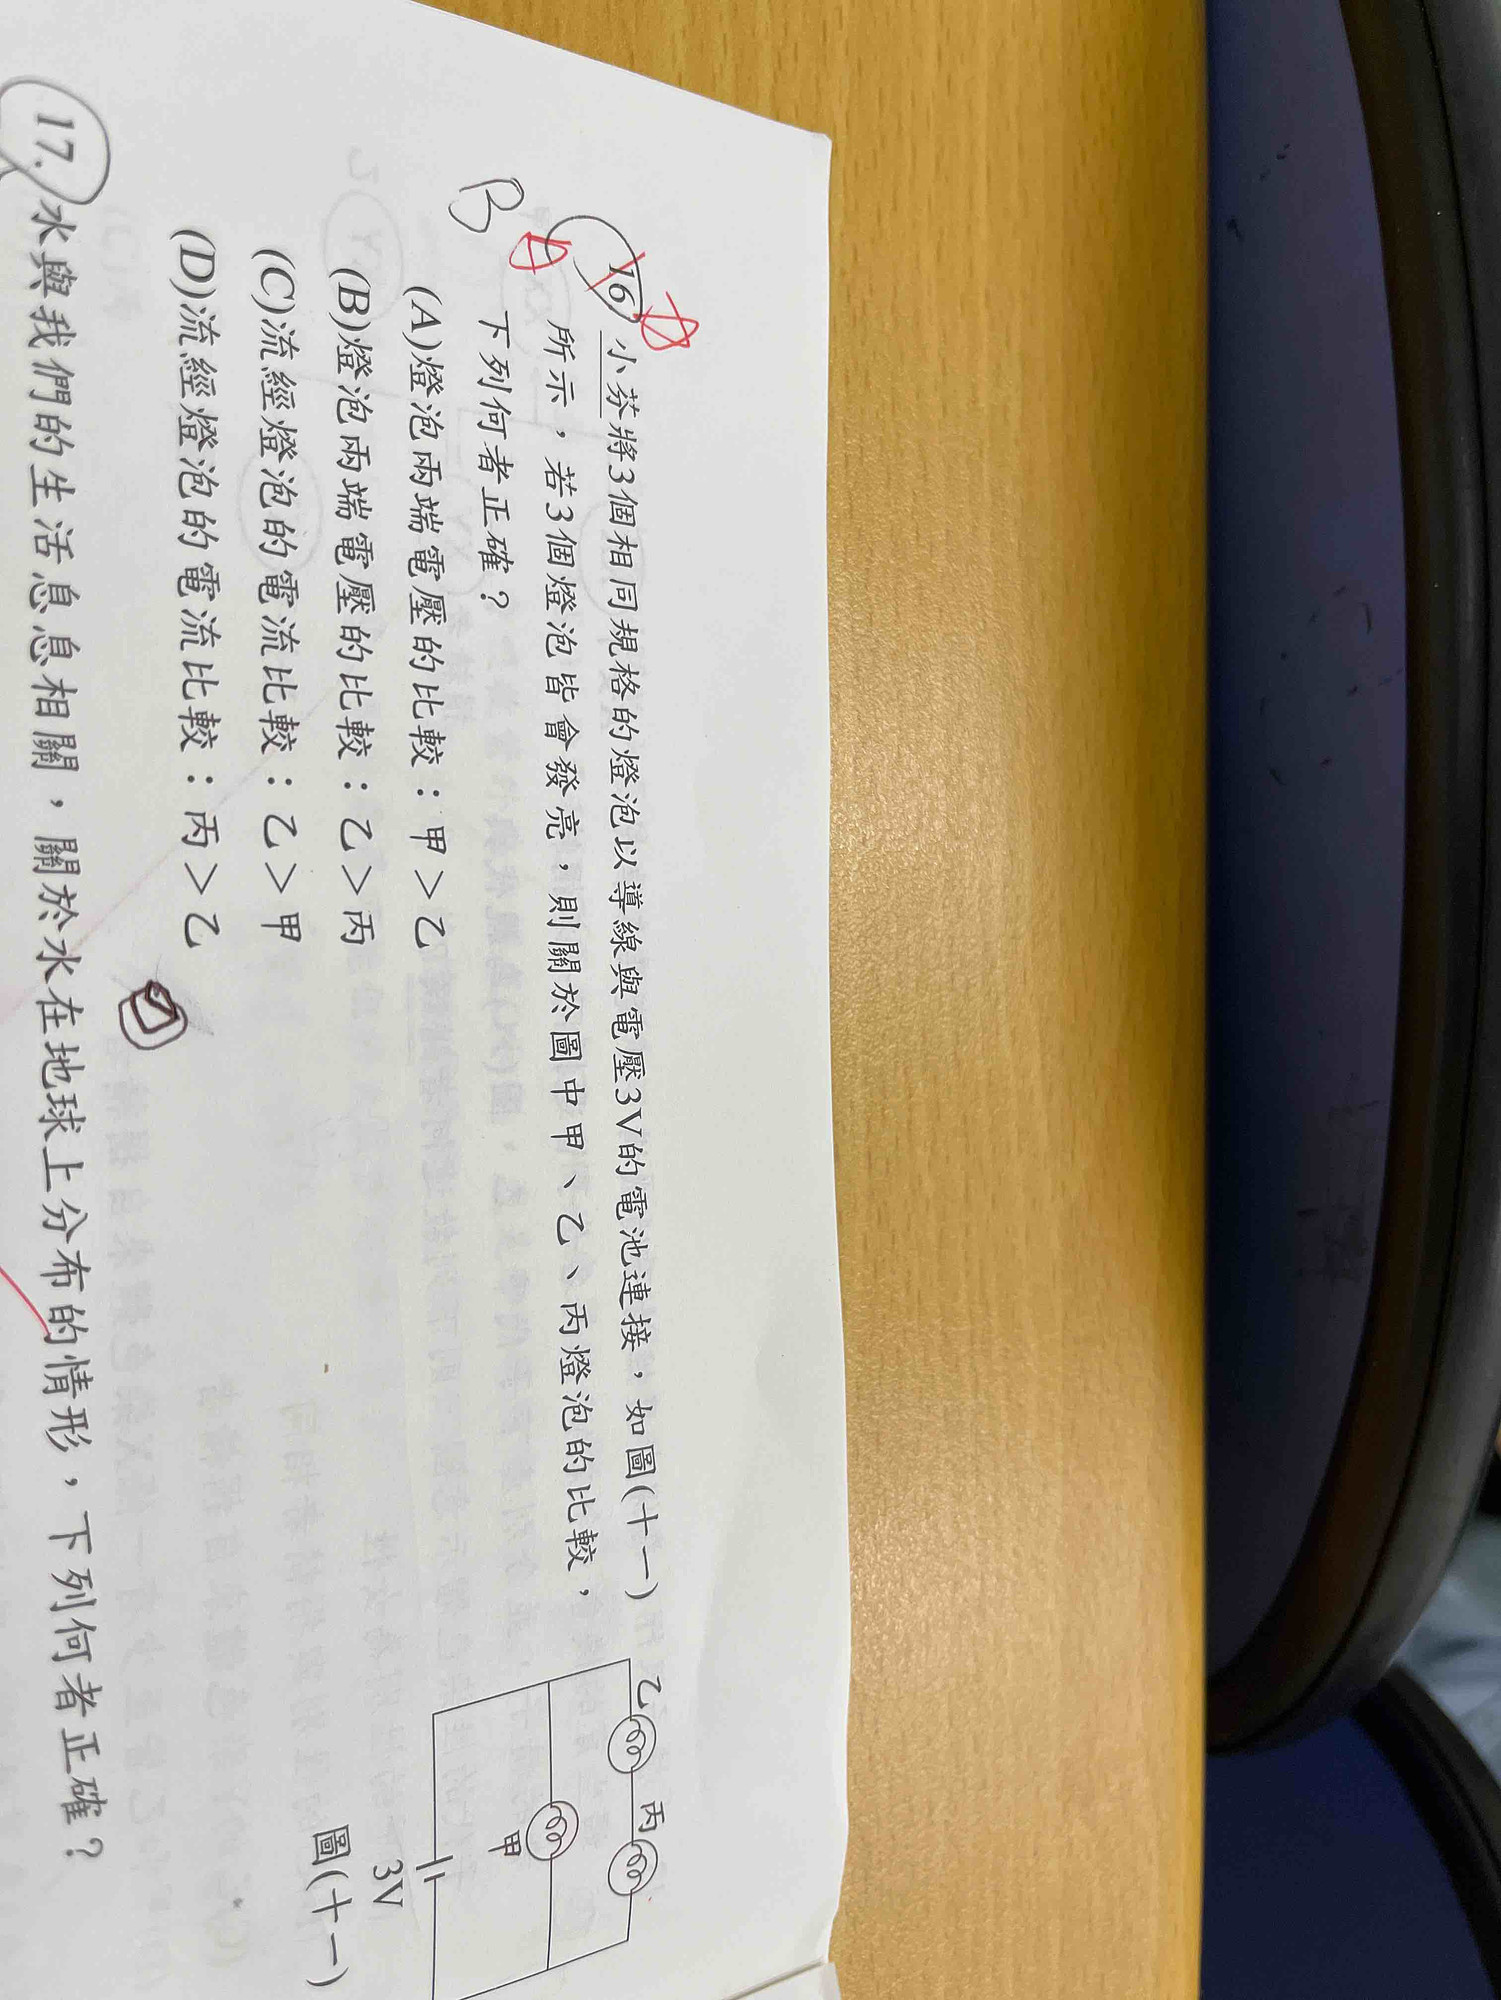 16. 小芬將3個相同規格的燈泡以導線與電壓3V的電池連接，如圖(十一)
所示，若3個燈泡皆會發亮，則關於圖中甲、乙、丙燈泡的比較，
下列何者正確？
B
(A)燈泡兩端電壓的比較：甲＞乙
(B)燈泡兩端電壓的比較：乙＞丙
(C)流經燈泡的電流比較：乙＞甲
(D)流經燈泡的電流比較：丙＞乙
乙
丙
甲
3V
圖(十一)
17. 水與我們的生活息息相關，關於水在地球上分布的情形，下列何者正確？